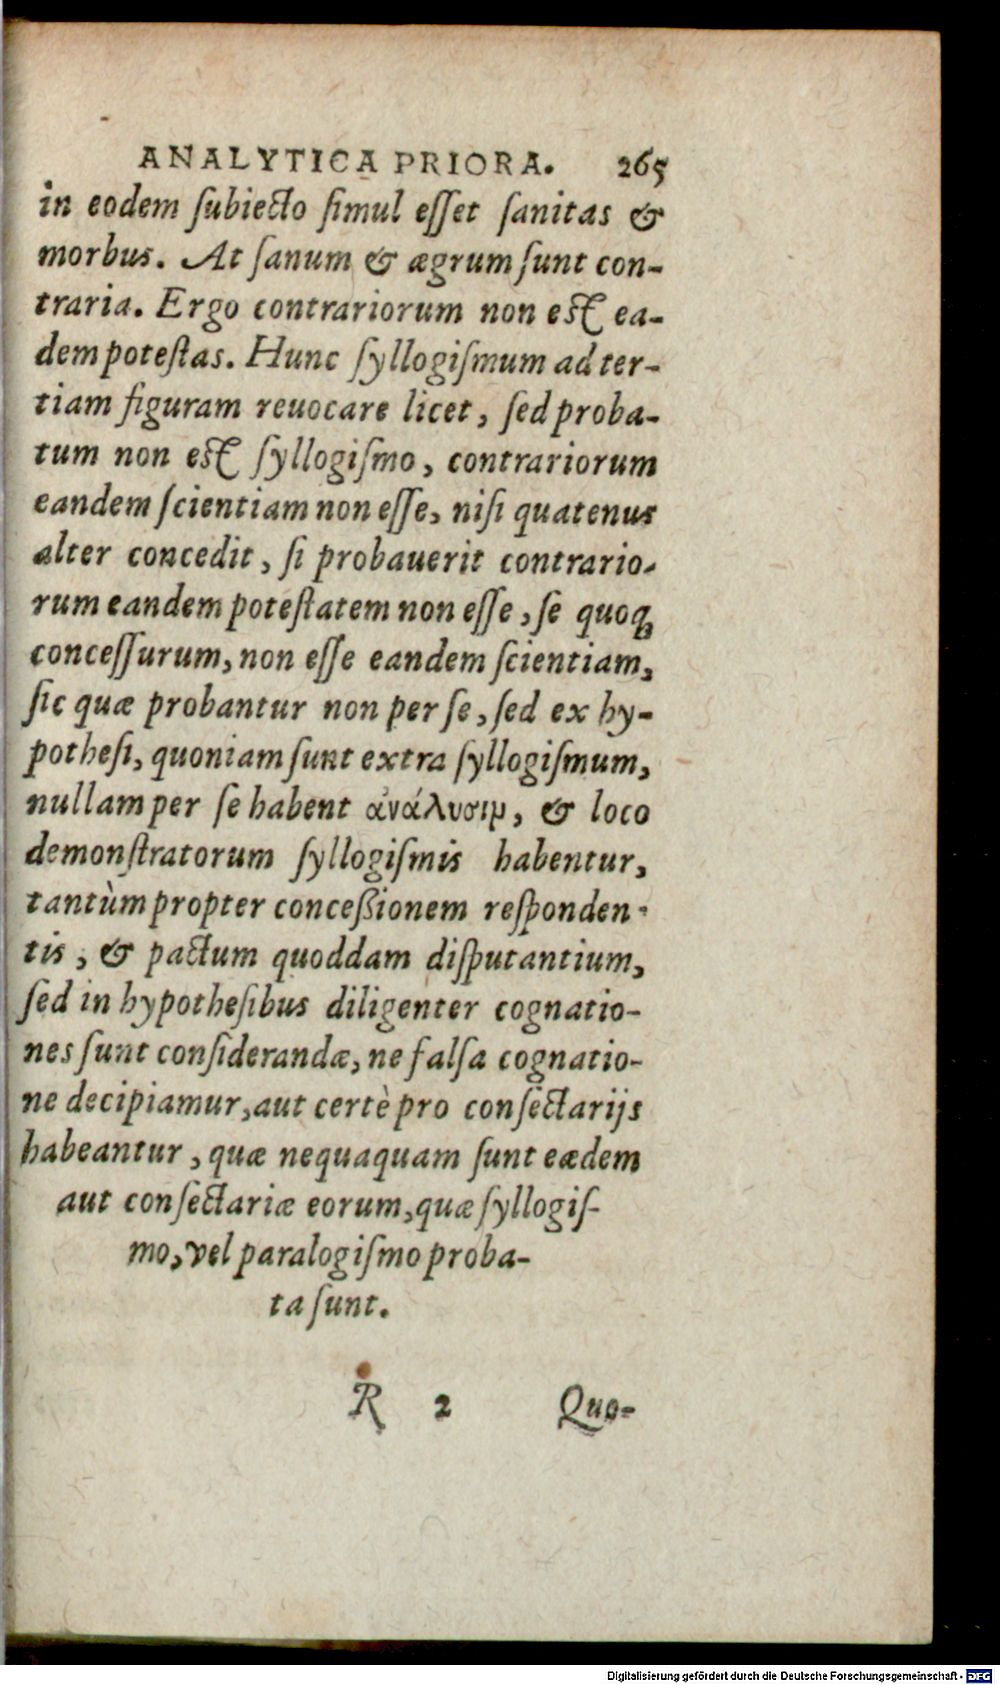 ANALYTICA PRIORA. 265
in eodem ſubiecto ſimul eſſet ſanitas &
morbus. At ſanum & ægrum ſunt con-
traria. Ergo contrariorum non eſt ea-
dem poteſtas. Hunc ſyllogiſmum ad ter-
tiam figuram reuocare licet, ſed proba-
tum non eſt ſyllogiſmo, contrariorum
eandem ſcientiam non eſſe, niſi quatenus
alter concedit, ſi probauerit contrario-
rum eandem poteſtatem non eſſe, ſe quoq;
conceſſurum, non eſſe eandem ſcientiam,
ſic quæ probantur non per ſe, ſed ex hy-
potheſi, quoniam ſunt extra ſyllogiſmum,
nullam per ſe habent ἀνάλυσιν, & loco
demonſtratorum ſyllogiſmis habentur,
tantùm propter conceßionem reſponden-
tis, & pactum quoddam diſputantium,
ſed in hypotheſibus diligenter cognatio-
nes ſunt conſiderandæ, ne falſa cognatio-
ne decipiamur, aut certè pro conſectarijs
habeantur, quæ nequaquam ſunt eædem
aut conſectariæ eorum, quæ ſyllogiſ-
mo, vel paralogiſmo proba-
ta ſunt.
R 2 Quo-
Digitalisierung gefördert durch die Deutsche Forschungsgemeinschaft - DFG